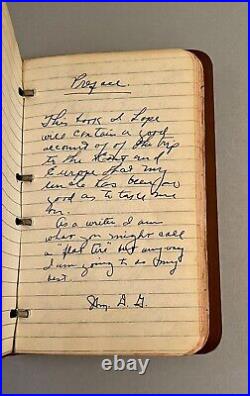 Preface.
This book I hope
will contain a good
account of of the trip
to the East and
Europe that my
uncle has been so
good as to take me
on.
As a writer I am
what you might call
a "flat tire" but anyway
I am going to do my
best.
D. G.
ebth